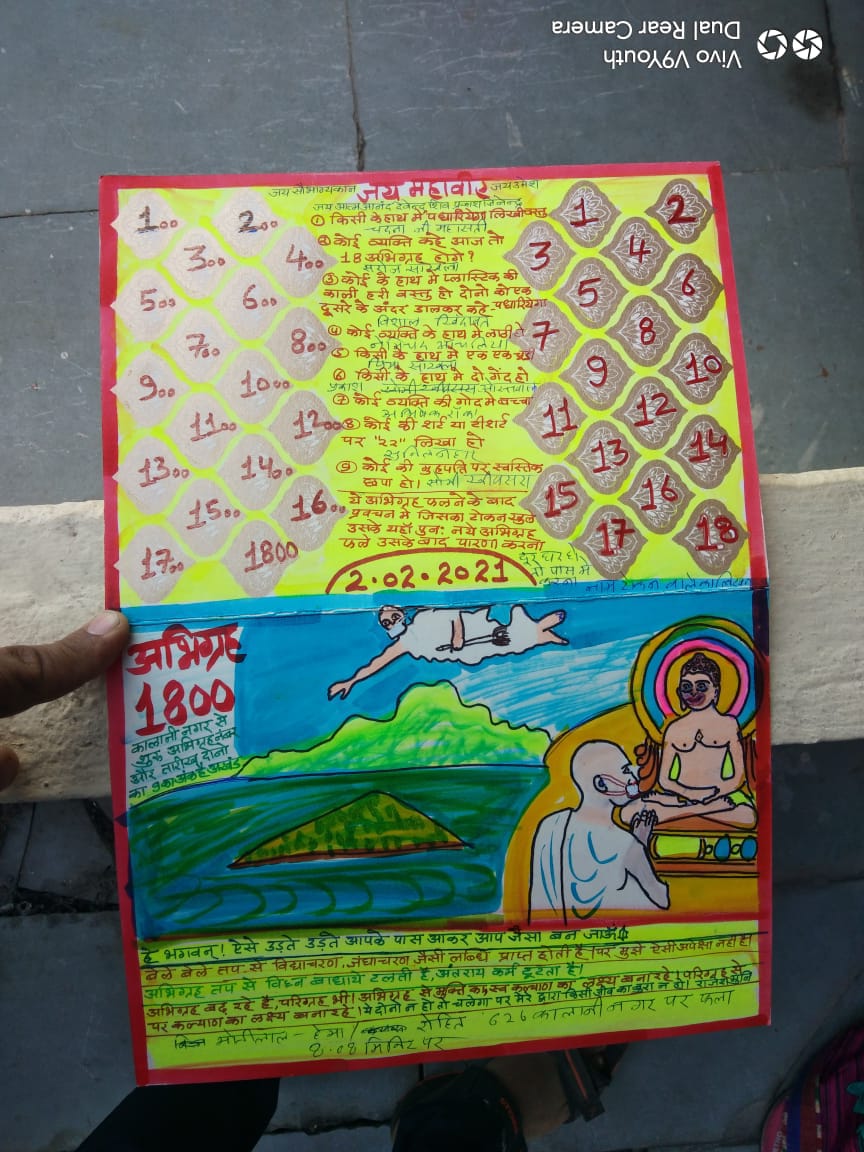 Vivo V9Youth
Dual Rear Camera
जय महावीर
जय सौभाग्यकान
जयउमेश
जय आत्म आनंद देवेन्द्र शिव प्रकाश जिनेन्द्र
① किसी के हाथ में पधारियेगा लिखी वस्तु
चंदना जी महासती
② कोई व्यक्ति कहे आज तो
18 अभिग्रह होंगे?
सरोज साखला
③ कोई के हाथ में प्लास्टिक की
काली हरी वस्तु हो दोनो को एक
दूसरे के अंदर डालकर कहे-पधारियेगा
विशाल
④ कोई व्यक्ति के हाथ में लाठी
⑤ किसी के हाथ में एक एक
⑥ किसी के हाथ में दो गेंद हो
प्रकाश
⑦ कोई व्यक्ति की गोद में बच्चा
अभिषेक रांका
⑧ कोई की शर्ट या टीशर्ट
पर "२२" लिखा हो
सुनित
⑨ कोई की मुहपत्ति पर स्वस्तिक
छपा हो। सोमी
ये अभिग्रह फलने के बाद
प्रवचन में जिसका टोकन खुले
उसके यहाँ पुनः नये अभिग्रह
फले उसके बाद पारणा करना
100 200
300 400
500 600
700 800
900 1000
1100 1200
1300 1400
1500 1600
1700 1800
1 2
3 4
5 6
7 8
9 10
11 12
13 14
15 16
17 18
2.02.2021
अभिग्रह
1800
कालानी नगर से
शुरु अभिग्रह नंबर
और तारीख दोनो
का 9 का अंक है अखंड
हे भगवन्! ऐसे उड़ते उड़ते आपके पास आकर आप जैसा बन जाऊँ।
बेले बेले तप से विद्याचरण, जंघाचरण जैसी लब्धि प्राप्त होती है, पर मुझे ऐसी अपेक्षा नही है।
अभिग्रह तप से विघ्न बाधाये टलती है, अंतराय कर्म टूटता है।
अभिग्रह बढ़ रहे है, परिग्रह भी। अभिग्रह से मुक्ति का, स्व कल्याण का लक्ष्य बना रहे। परिग्रह से
पर कल्याण का लक्ष्य बना रहे। ये दोनो न हो तो चलेगा पर मेरे द्वारा किसी जीव का बुरा न हो।
मोतीलाल - हेमा / रोहित 626 कालानी नगर पर फला
8.08 मिनिट पर